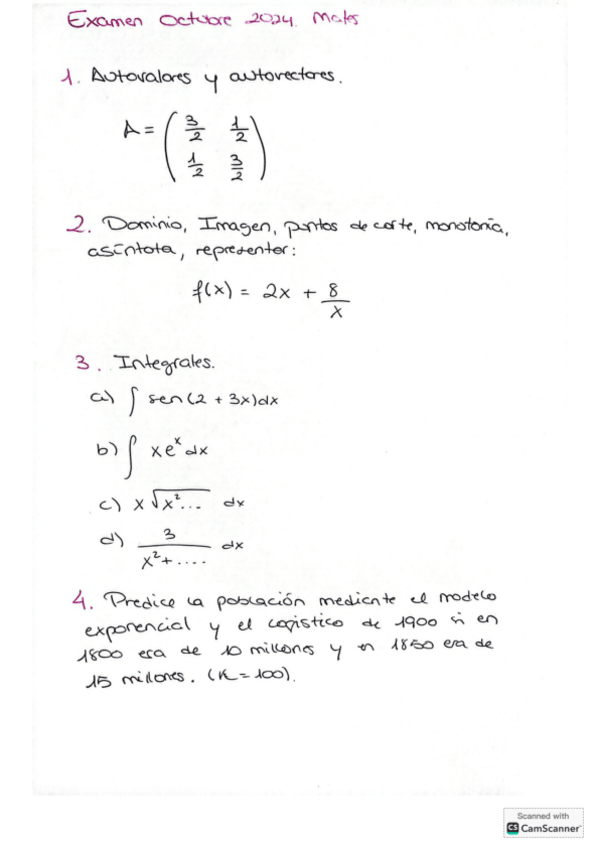 Examen Octubre 2024. Mates
1. Autovalores y autovectores.
A = ( 3/2 1/2
1/2 3/2 )
2. Dominio, Imagen, puntos de corte, monotonía,
asíntota, representar:
f(x) = 2x + 8/x
3. Integrales.
a) ∫ sen(2 + 3x)dx
b) ∫ xe^x dx
c) x√x²... dx
d) 3/(x²+....) dx
4. Predice la población mediante el modelo
exponencial y el logístico de 1900 si en
1800 era de 10 millones y en 1850 era de
15 millones. (K=100).
Scanned with
CS CamScanner